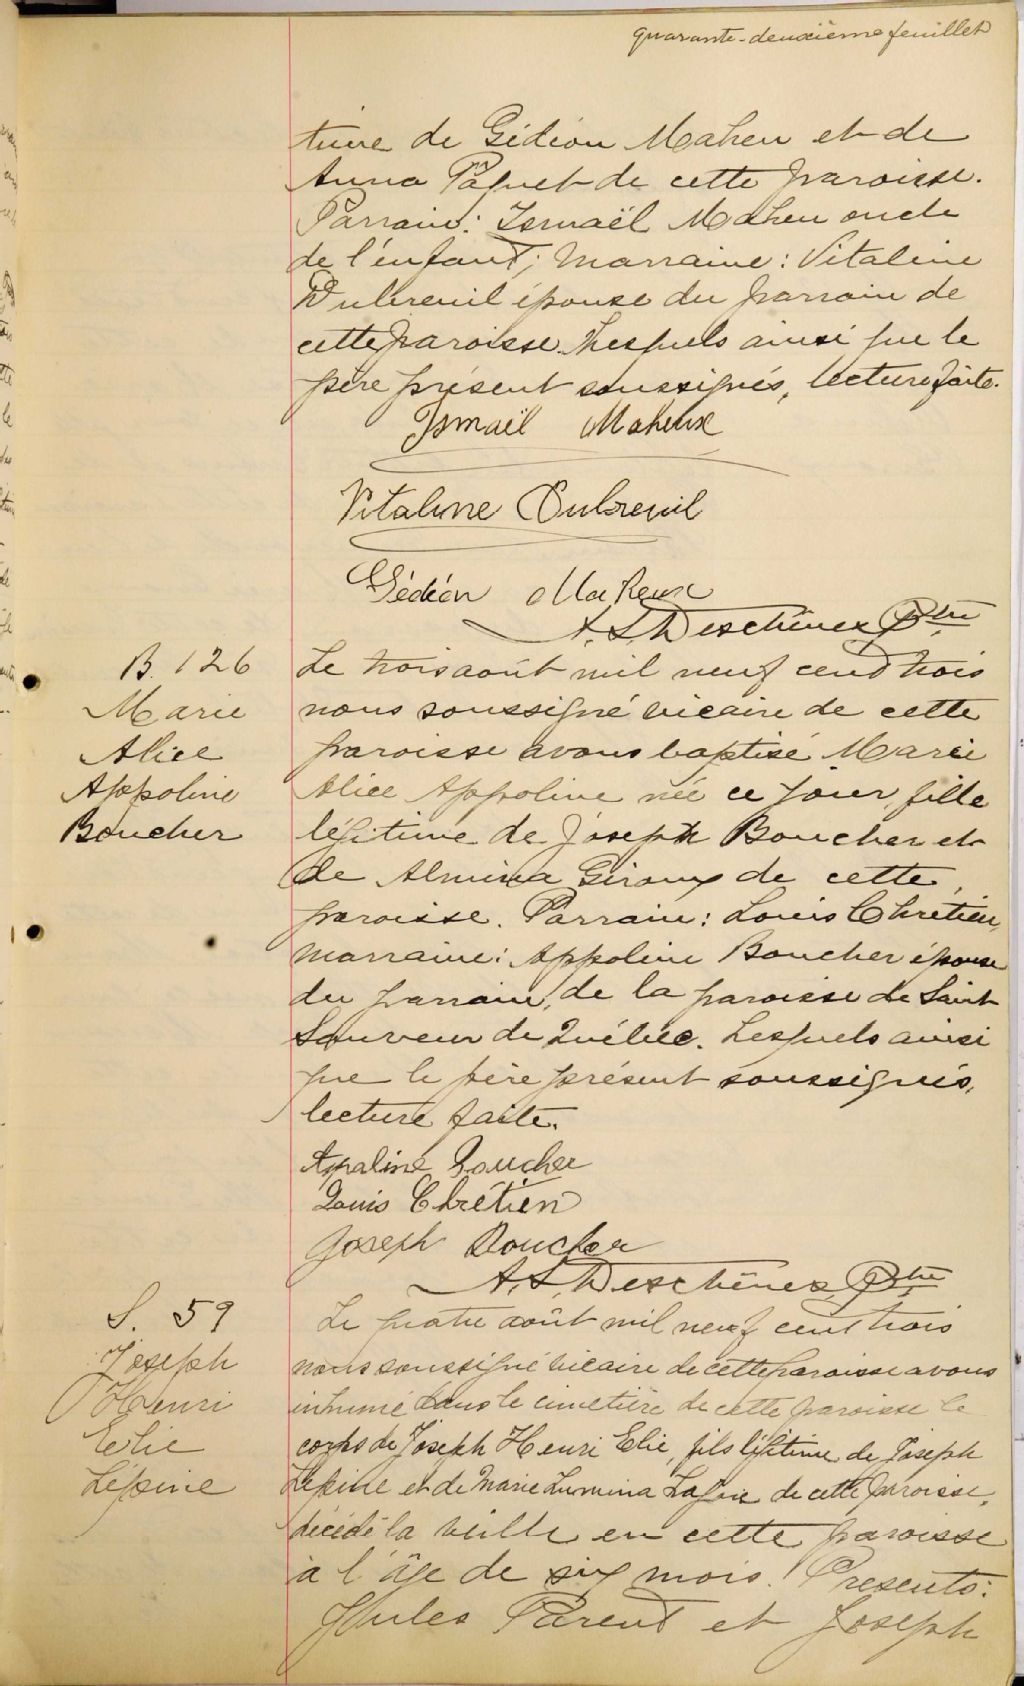 quarante-deuxième feuillet
time de Gédéon Maheu et de
Anna Pâquet de cette paroisse.
Parrain: Ismaël Maheu oncle
de l'enfant; marraine: Vitaline
Dubreuil épouse du parrain de
cette paroisse. Lesquels ainsi que le
père présent soussignés, lecture faite.
Ismaël Maheux
Vitaline Dubreuil
Gédéon Maheux
A. S. Deschênes Ptre
B. 126
Marie
Alice
Appoline
Boucher
Le trois août mil neuf cent trois
nous soussigné vicaire de cette
paroisse avons baptisé Marie
Alice Appoline née ce jour, fille
légitime de Joseph Boucher et
de Almina Giroux de cette
paroisse. Parrain: Louis Chrétien,
marraine: Appoline Boucher épouse
du parrain, de la paroisse de Saint
Sauveur de Québec. Lesquels ainsi
que le père présent soussignés,
lecture faite.
Apaline Boucher
Louis Chrétien
Joseph Boucher
A. S. Deschênes, Ptre
S. 59
Joseph
Henri
Elie
Lépine
Le quatre août mil neuf cent trois
nous soussigné vicaire de cette paroisse avons
inhumé dans le cimetière de cette paroisse le
corps de Joseph Henri Elie, fils légitime de Joseph
Lépine et de Marie Lumina de cette paroisse,
décédé la veille en cette paroisse
à l'âge de six mois. Présents:
Jules Parent et Joseph